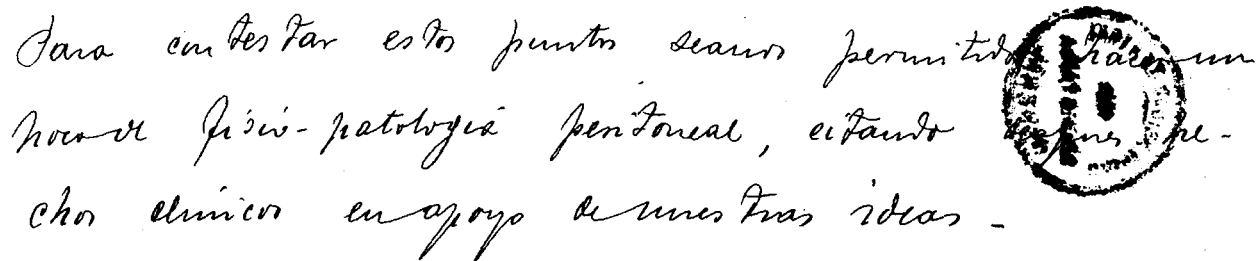 Para contestar estos puntos seanos permitido hacer un
poco de fisio-patologia peritoneal, citando despues he-
chos clinicos en apoyo de nuestras ideas -